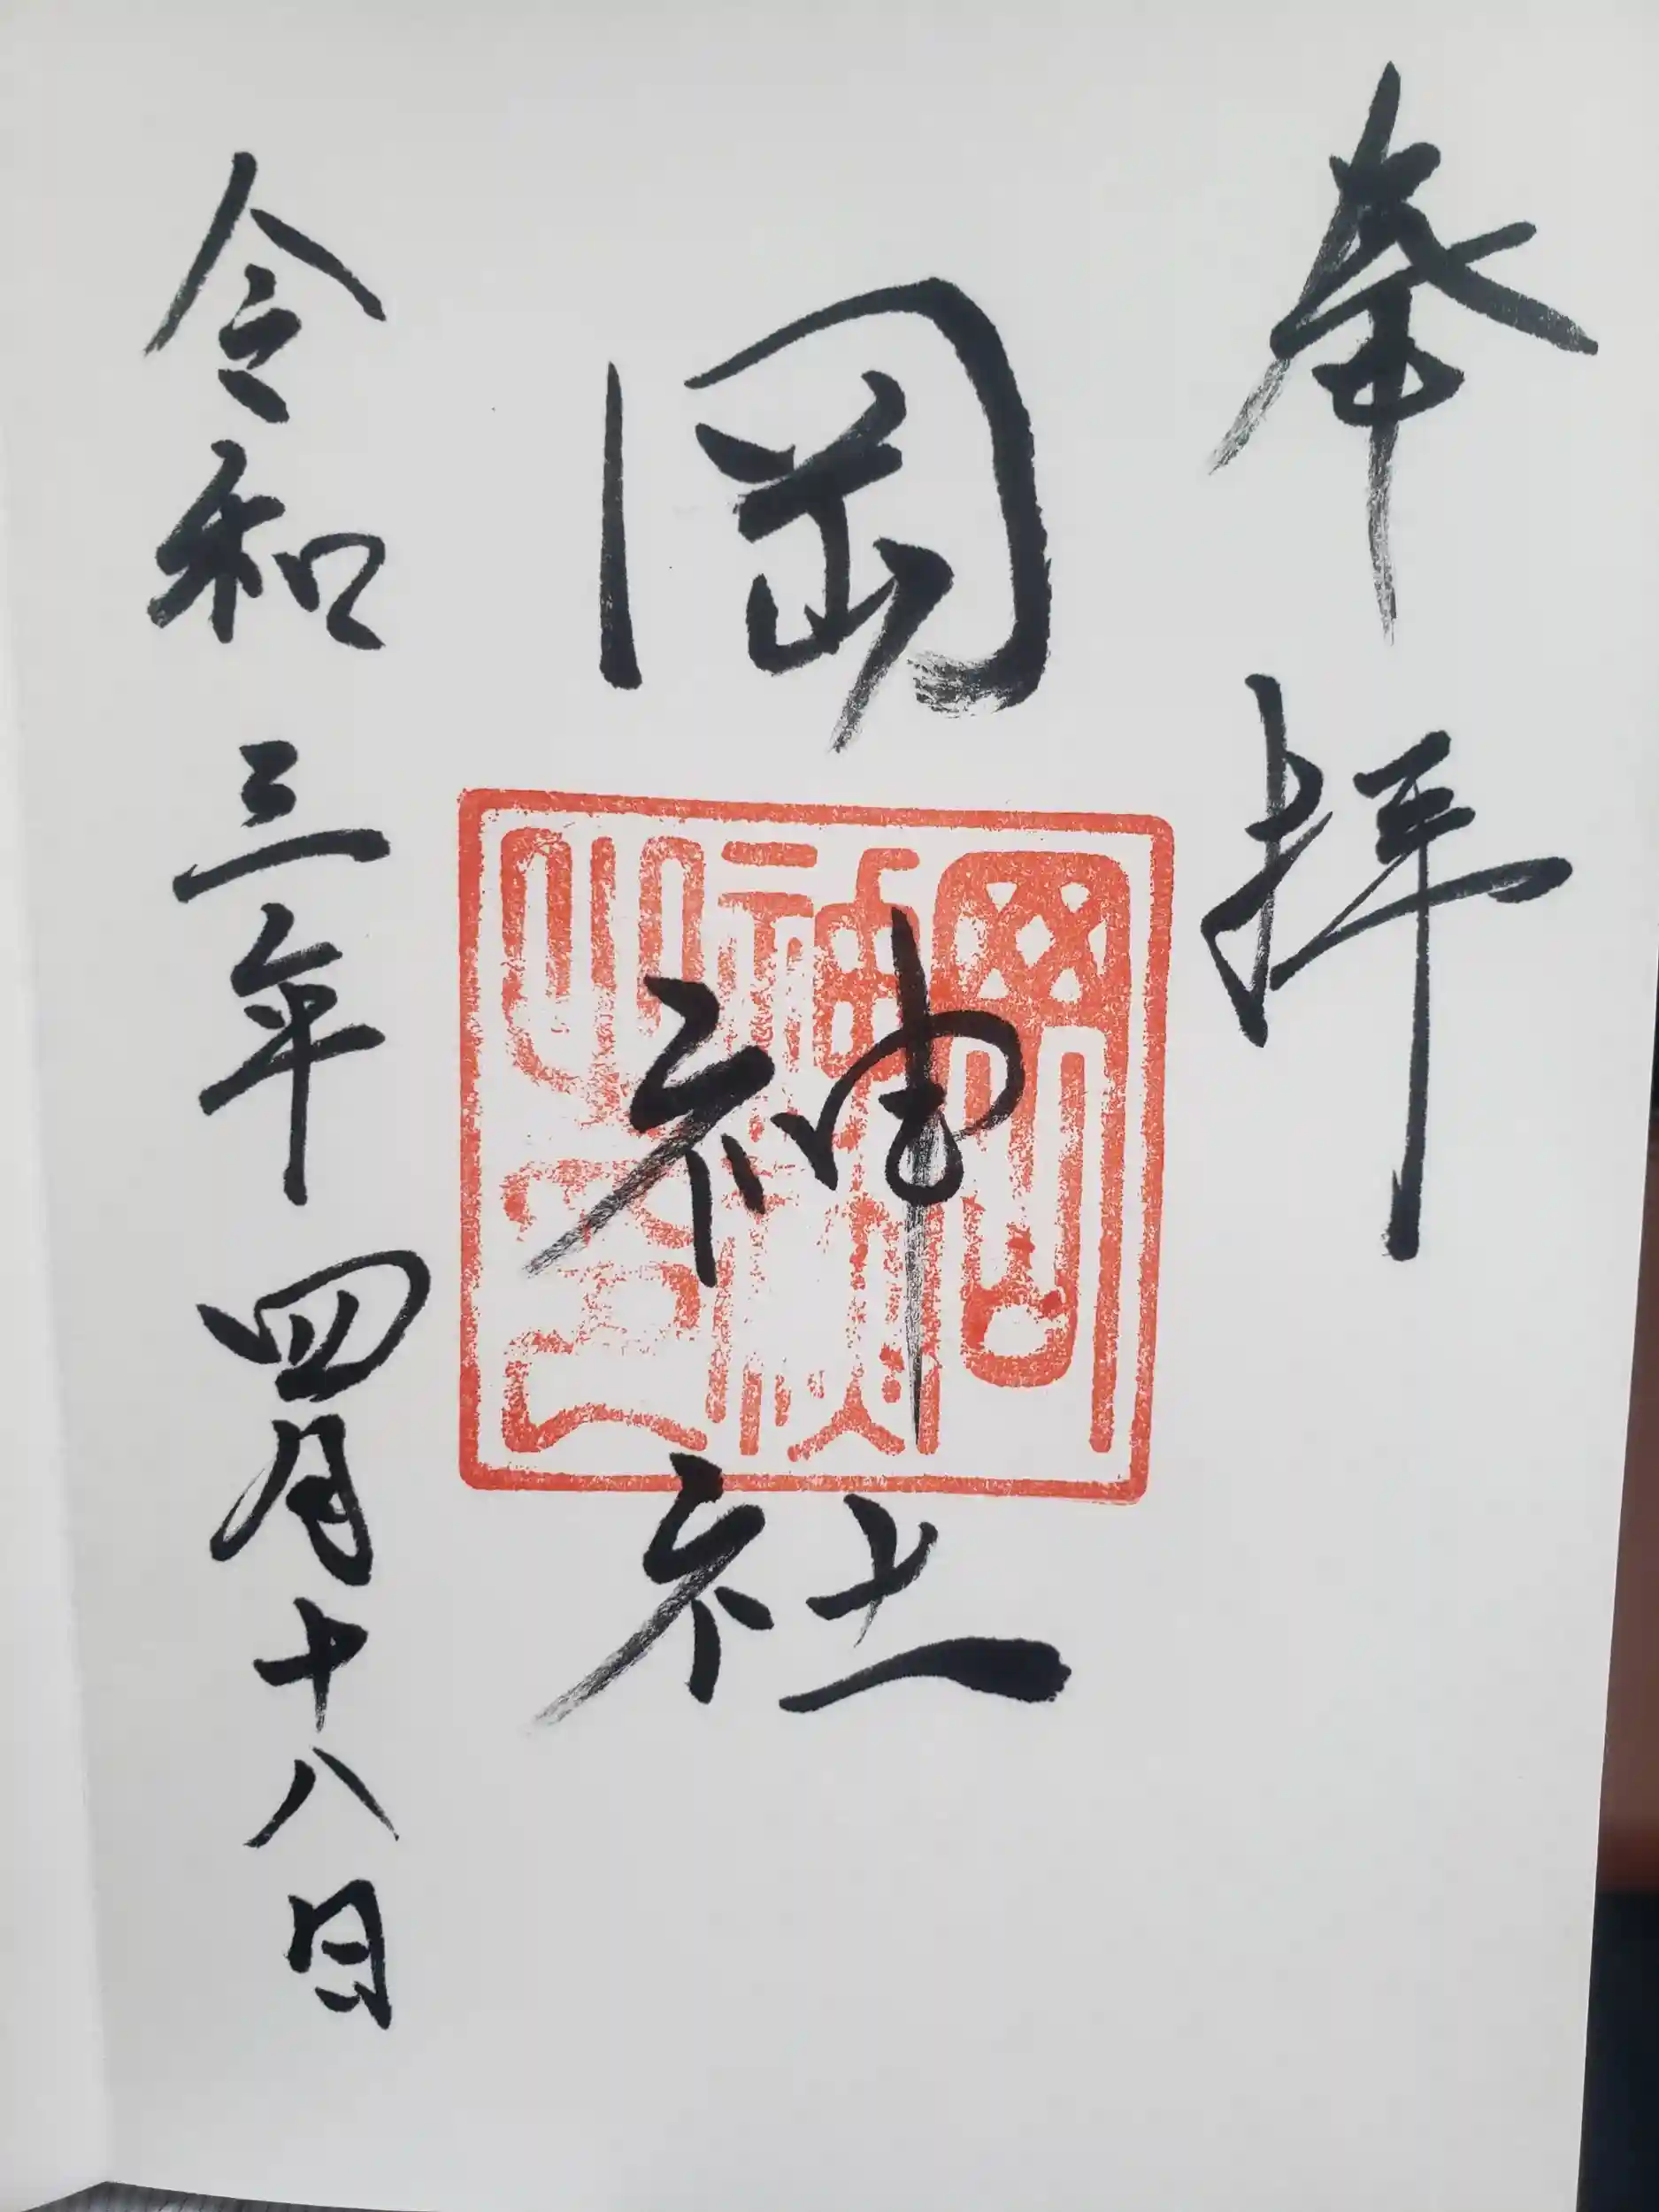 奉拝
岡神社
岡神社之印
令和三年四月十八日